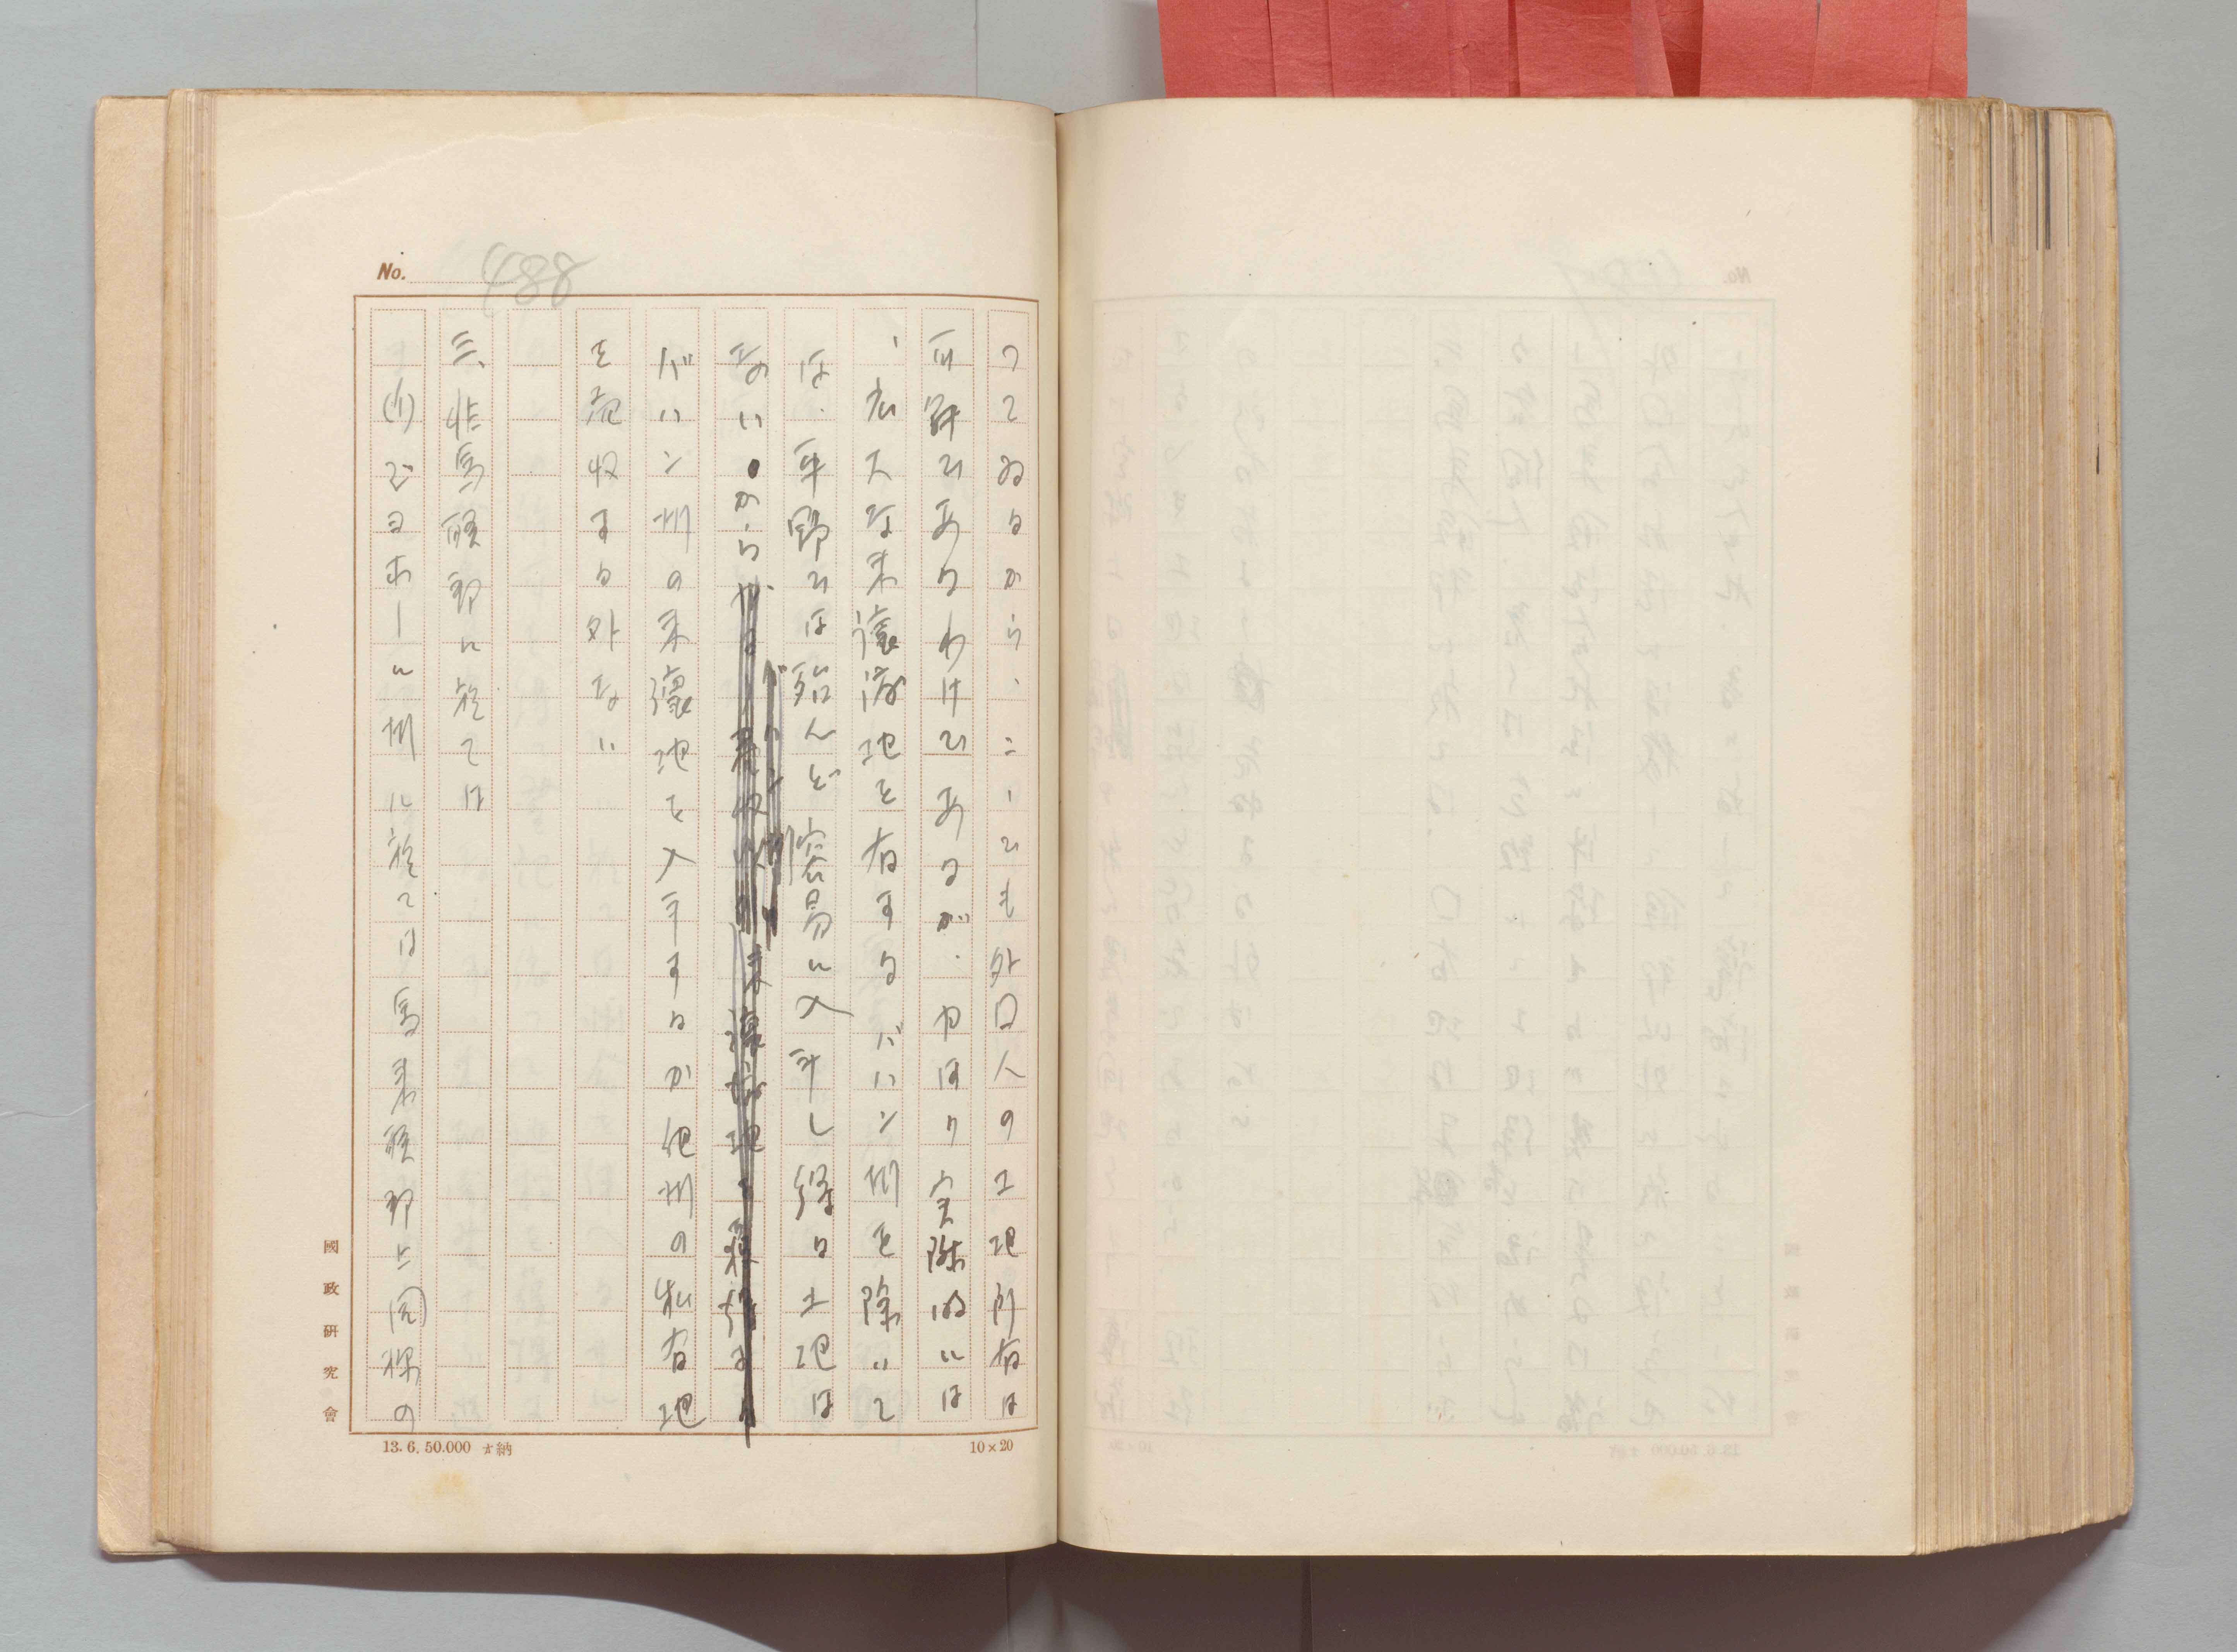 No. 488
つてゐるから、こゝでも外口人の土地所有は
可能であるわけであるが、やはり実際的には
、広大な未譲渡地を有するパハン州を除いて
は、平野では殆んど容易に入手し得る土地は
ない。から
パハン州の未譲渡地を入手するか他州の私有地
を買収する外ない
三、非馬聯邦に於ては
(イ)ジヨホールに州に於ては馬来聯邦と同様の
國政研究會
13. 6. 50.000 納
10×20